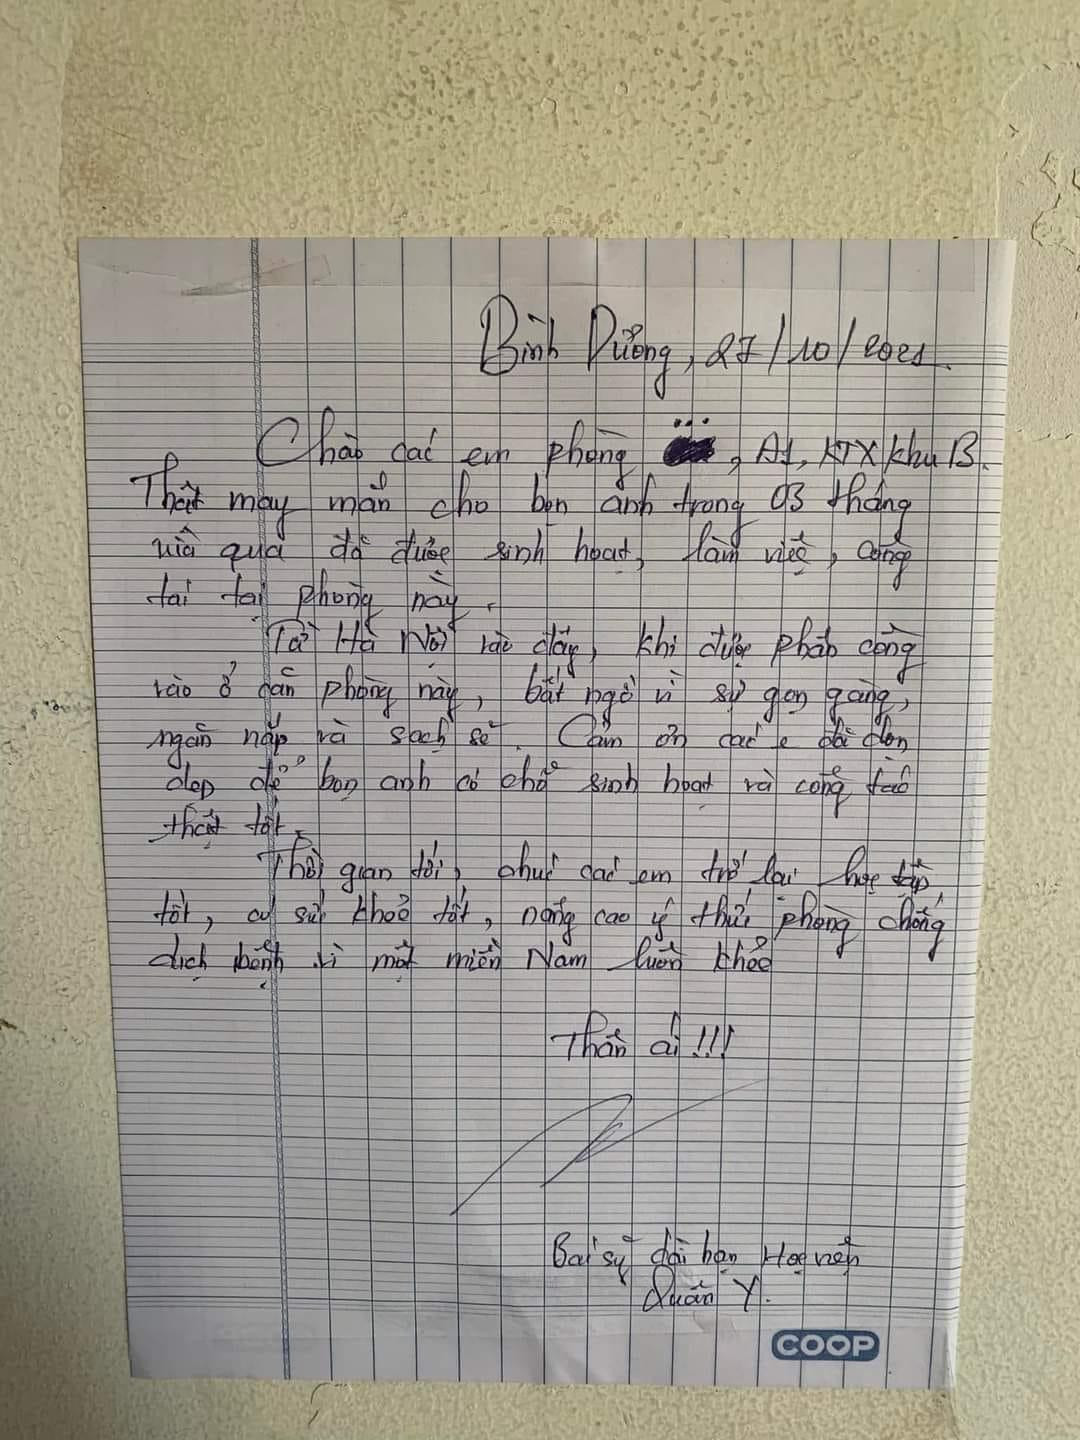 Bình Dương, 27/10/2021
Chào các em phòng ..., A1, KTX khu B.
Thật may mắn cho bọn anh trong 03 tháng
vừa qua đã được sinh hoạt, làm việc, công
tác tại phòng này.
Từ Hà Nội vào đây, khi được phân công
vào ở căn phòng này, bất ngờ vì sự gọn gàng,
ngăn nắp và sạch sẽ. Cảm ơn các e đã dọn
dẹp để bọn anh có chỗ sinh hoạt và công tác
thật tốt.
Thời gian tới, chúc các em trở lại học tập
tốt, có sức khoẻ tốt, nâng cao ý thức phòng chống
dịch bệnh vì một miền Nam luôn khoẻ
Thân ái !!!
Bác sỹ dài hạn Học viện
Quân Y.
COOP